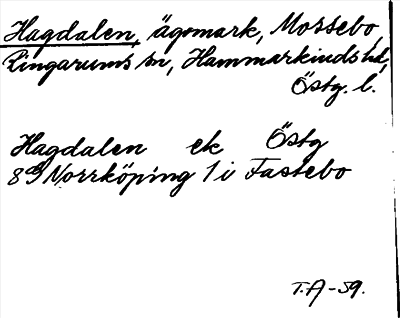 Hagdalen, ägomark, Mossebo,
Ringarums sn, Hammarkinds hd,
Östg. l.
Hagdalen ek Östg
8G Norrköping 1 i Fastebo
T.A-59.